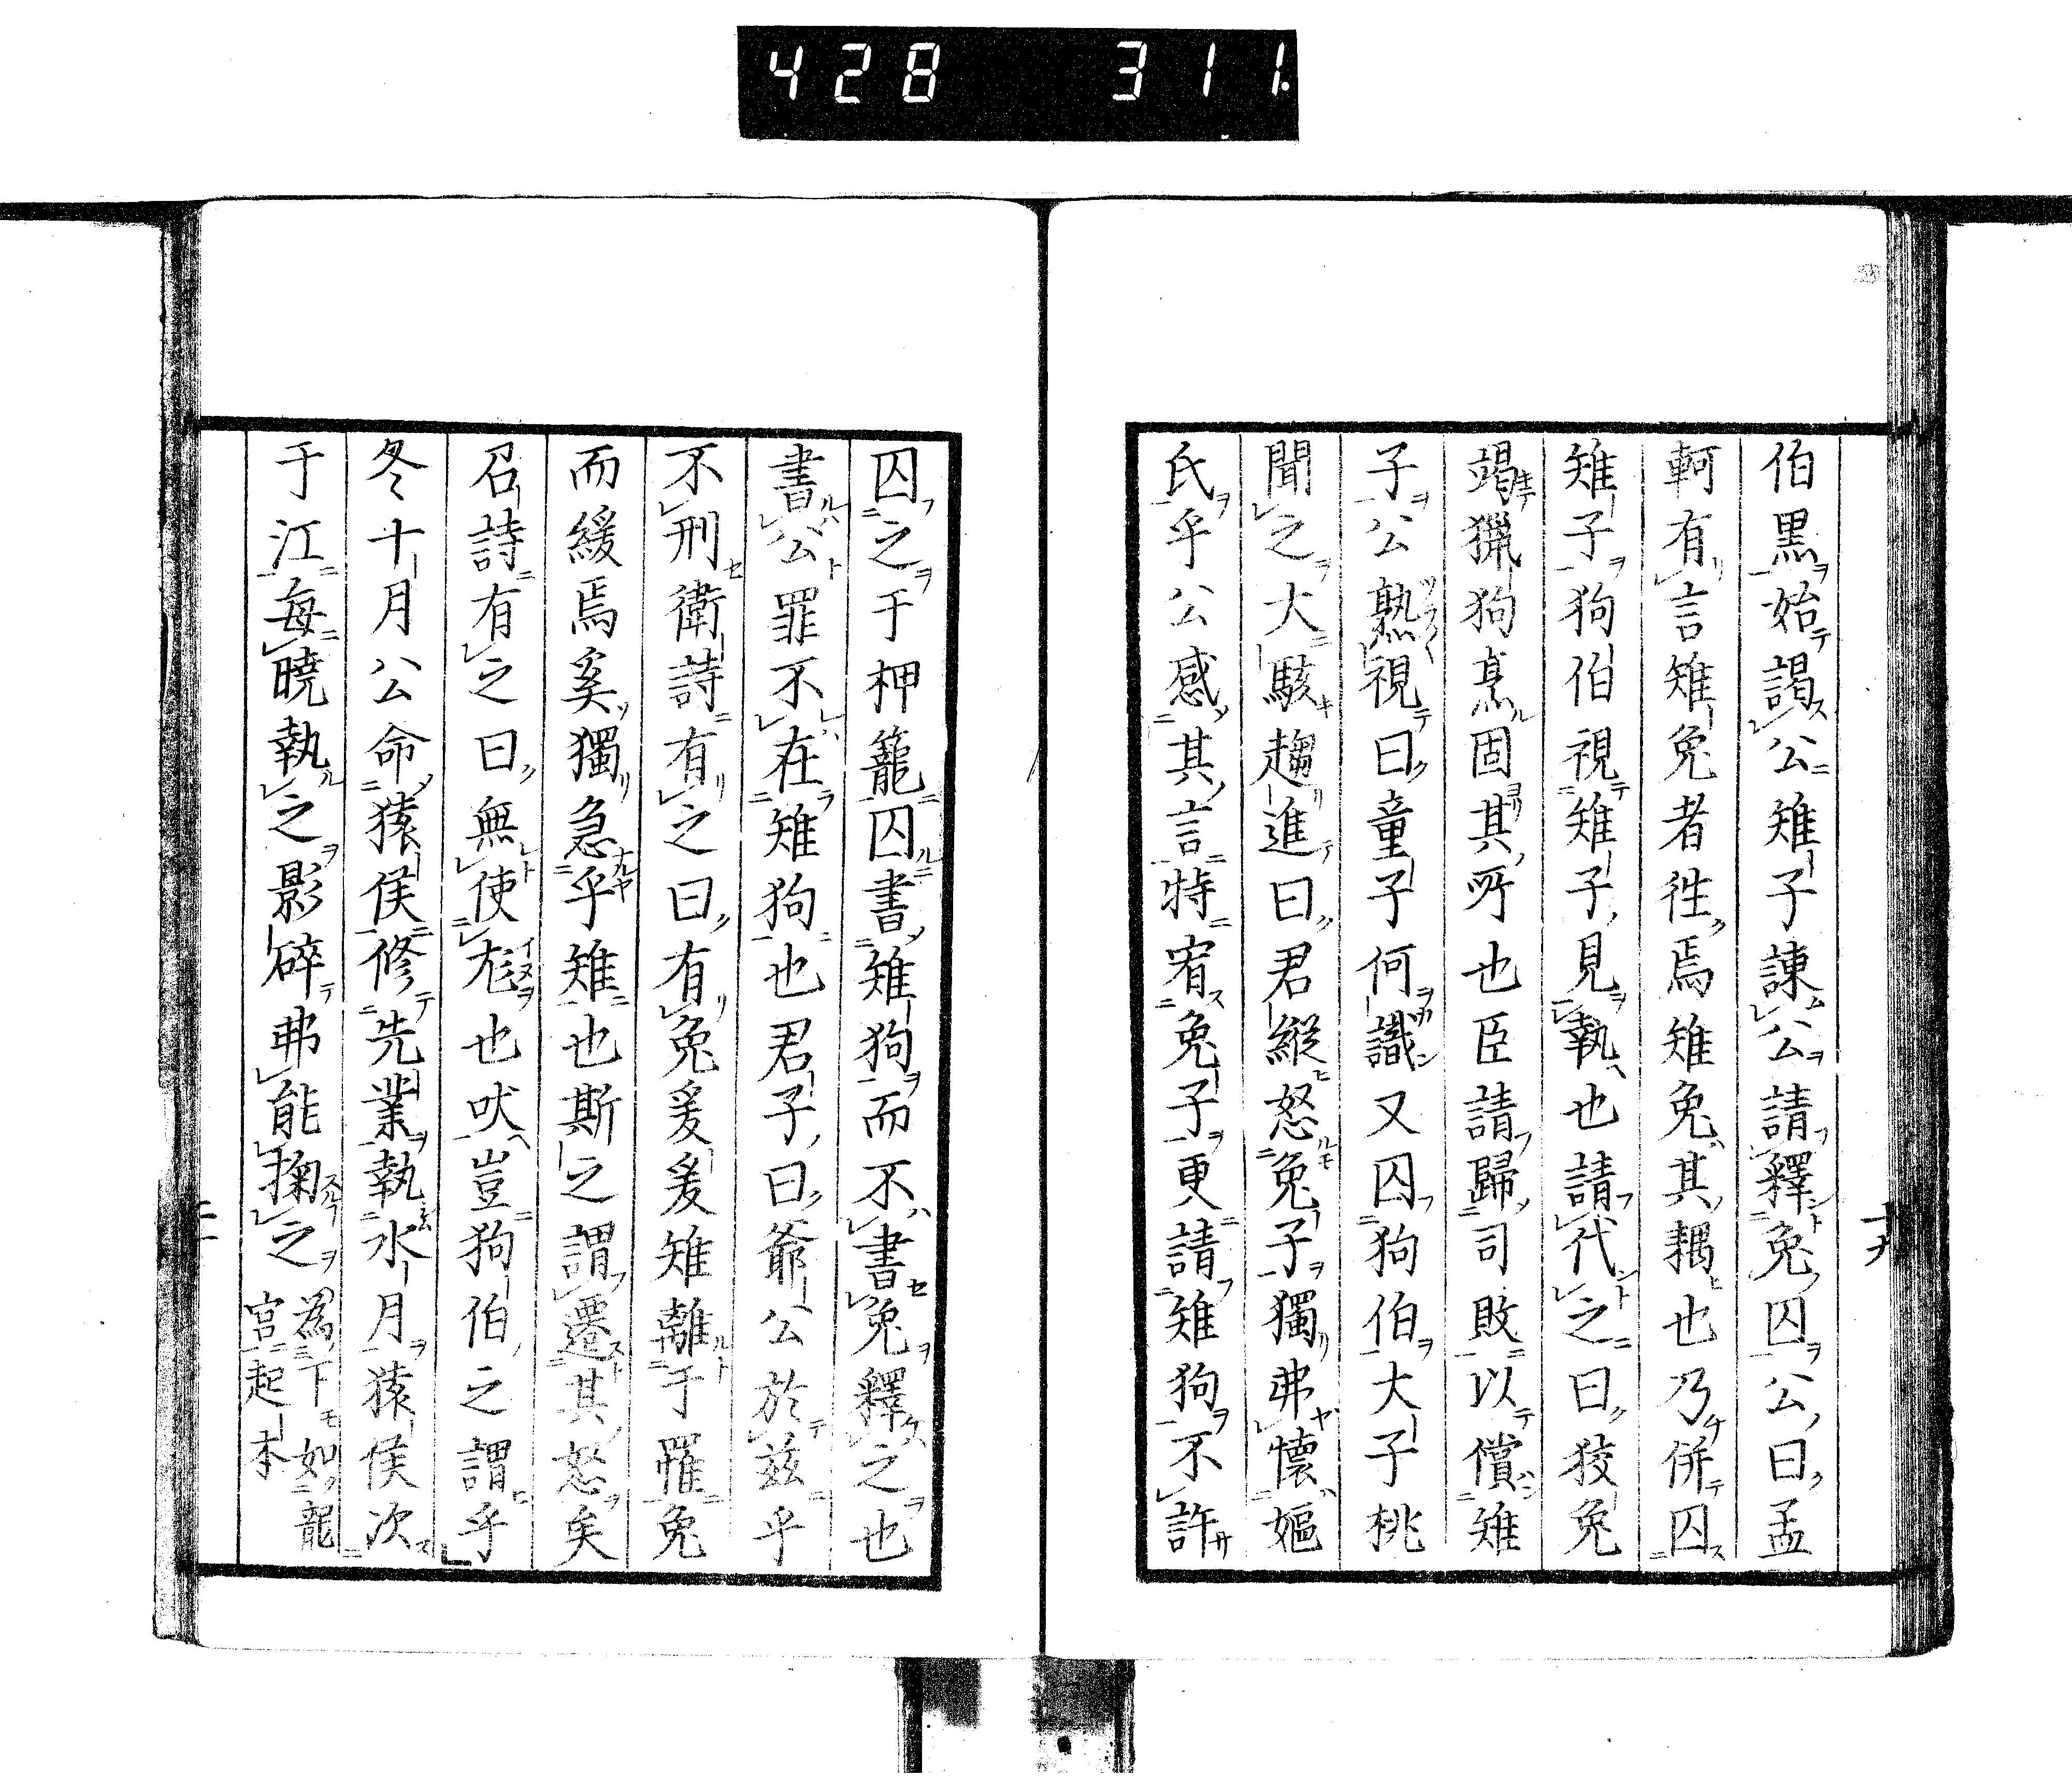 428 311
伯黒始謁公雉子諌公請釋兔囚公曰孟
軻有言雉兔者徃焉雉兔其耦也乃併囚
雉子狗伯視雉子見執也請代之曰狡兔
竭獵狗烹固其所也臣請歸司敗以償雉
子公熟視曰童子何識又囚狗伯大子桃
聞之大駭趨進曰君縦怒兔子獨弗懐嫗
氏乎公感其言特宥兔子更請雉狗不許
囚之于柙籠囚書雉狗而不書兔釋之也
書公罪不在雉狗也君子曰爺公於兹乎
不刑衛詩有之曰有兔爰爰雉離于羅兔
而緩焉奚獨急乎雉也斯之謂遷其怒矣
召詩有之曰無使尨也吠豈狗伯之謂乎
冬十月公命猿侯修先業執水月猿侯次
于江毎暁執之影碎弗能掬之為下如龍
宮起本